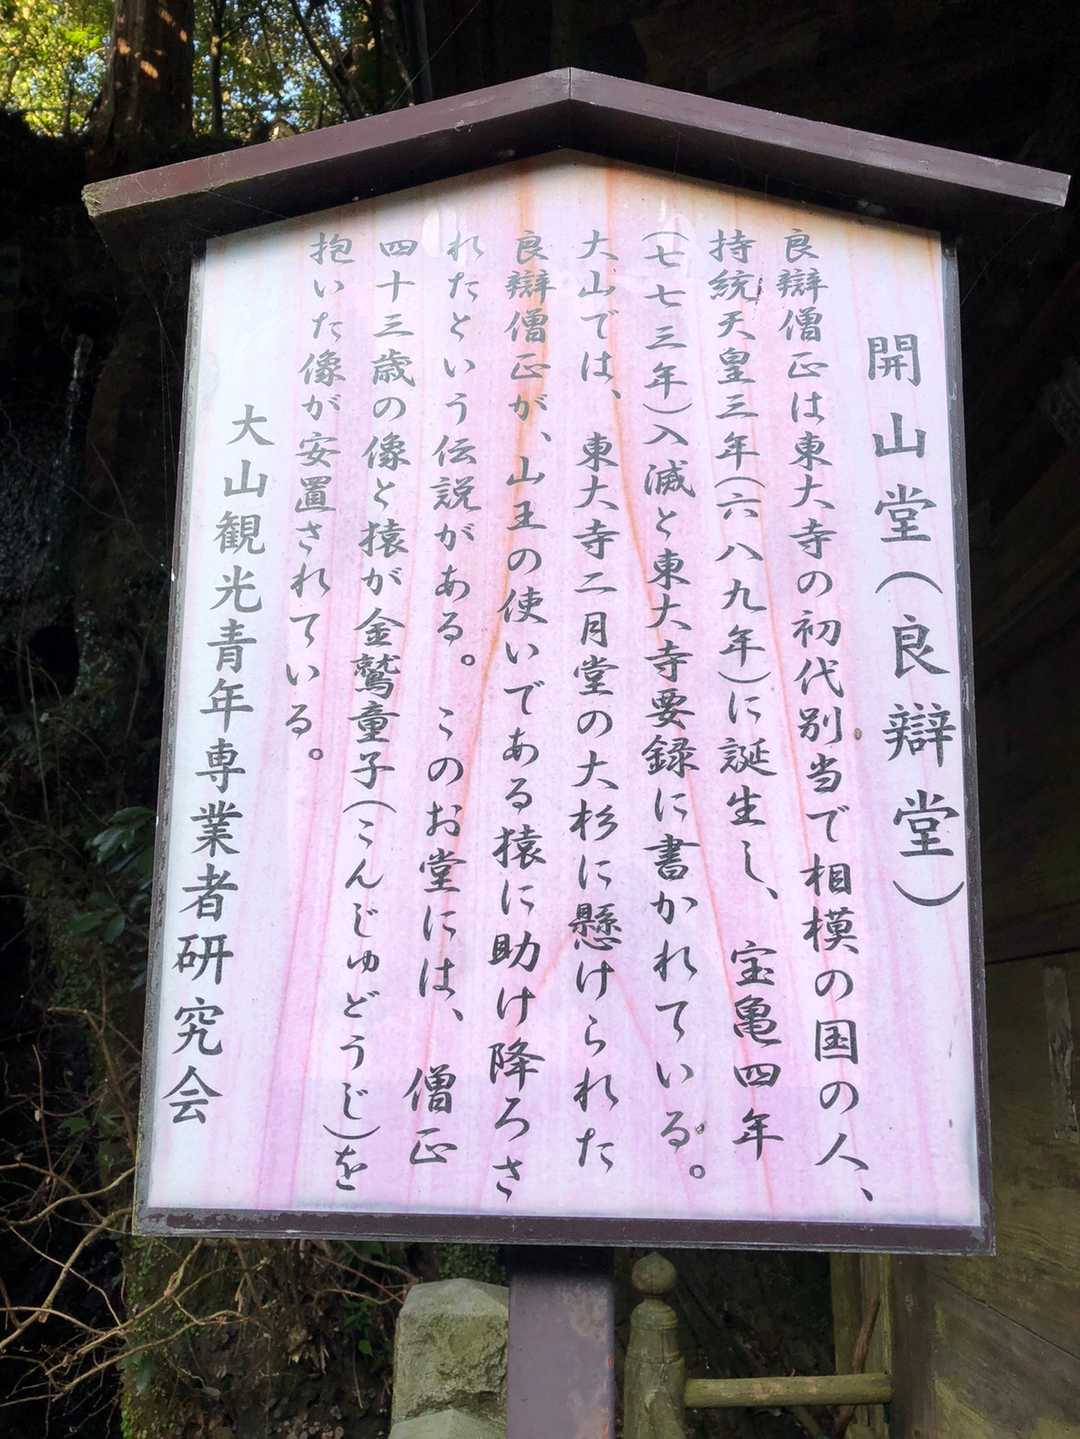 開山堂(良辯堂)
良辯僧正は東大寺の初代別当で相模の国の人、
持統天皇三年(六八九年)に誕生し、宝亀四年
(七七三年)入滅と東大寺要録に書かれている。
大山では、東大寺二月堂の大杉に懸けられた
良辯僧正が、山王の使いである猿に助け降ろさ
れたという伝説がある。このお堂には、僧正
四十三歳の像と猿が金鷲童子(こんじゅどうじ)を
抱いた像が安置されている。
大山観光青年専業者研究会